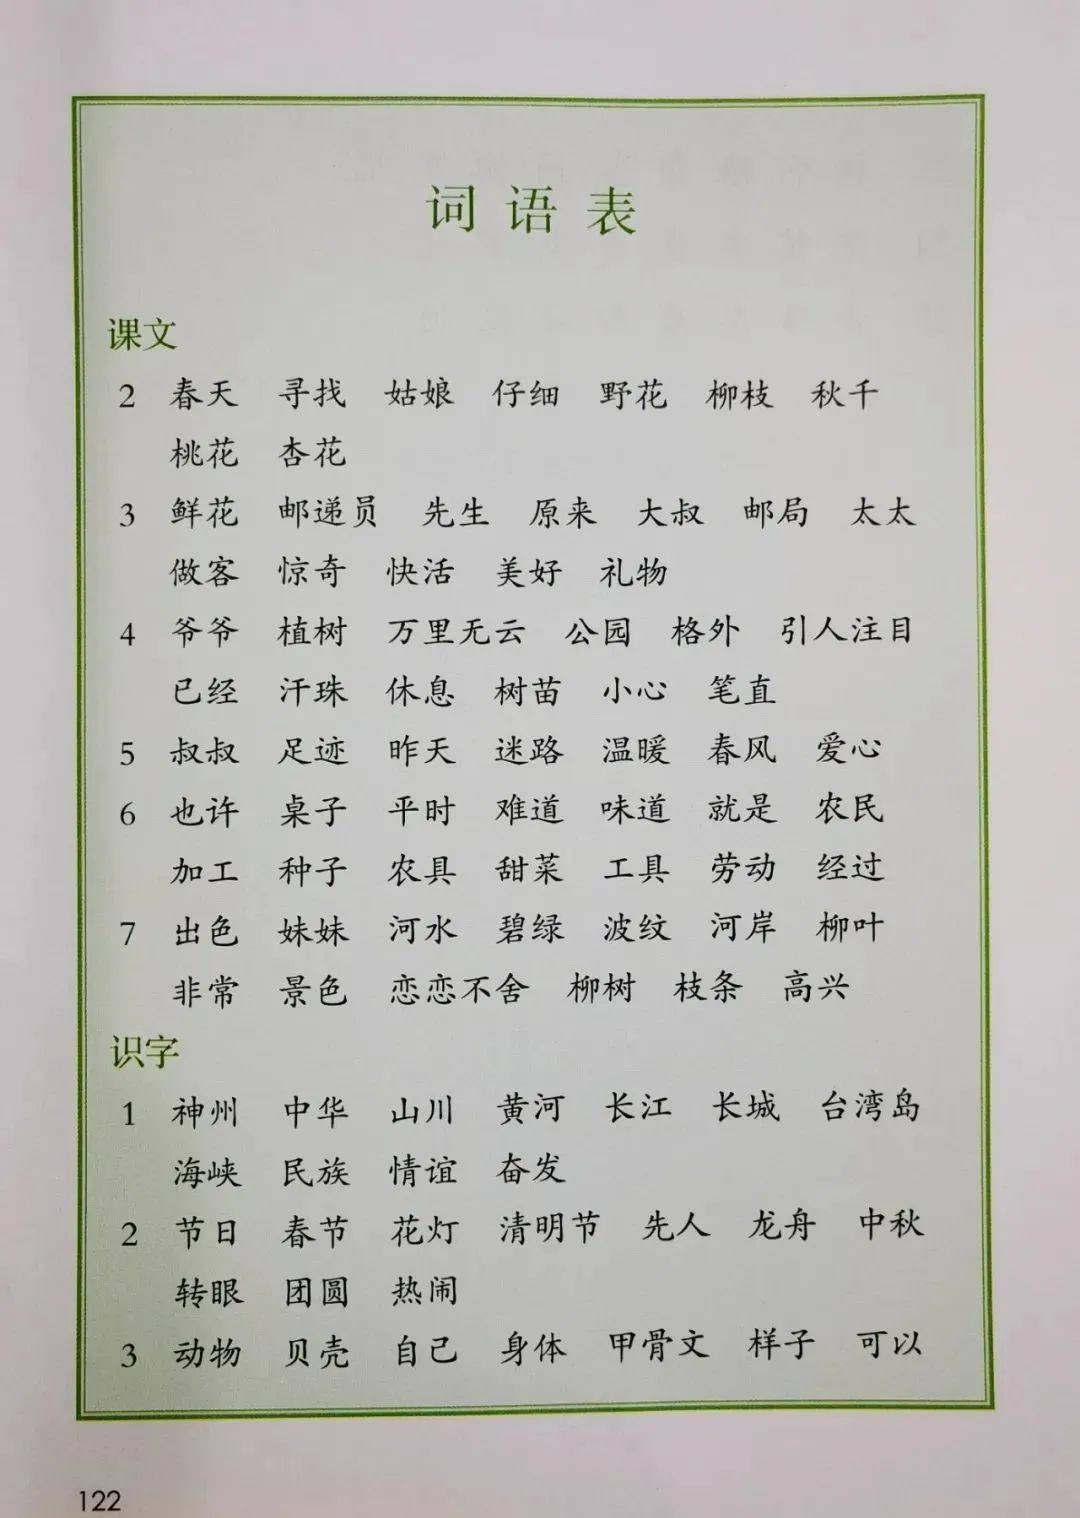 词语表
课文
2 春天 寻找 姑娘 仔细 野花 柳枝 秋千
桃花 杏花
3 鲜花 邮递员 先生 原来 大叔 邮局 太太
做客 惊奇 快活 美好 礼物
4 爷爷 植树 万里无云 公园 格外 引人注目
已经 汗珠 休息 树苗 小心 笔直
5 叔叔 足迹 昨天 迷路 温暖 春风 爱心
6 也许 桌子 平时 难道 味道 就是 农民
加工 种子 农具 甜菜 工具 劳动 经过
7 出色 妹妹 河水 碧绿 波纹 河岸 柳叶
非常 景色 恋恋不舍 柳树 枝条 高兴
识字
1 神州 中华 山川 黄河 长江 长城 台湾岛
海峡 民族 情谊 奋发
2 节日 春节 花灯 清明节 先人 龙舟 中秋
转眼 团圆 热闹
3 动物 贝壳 自己 身体 甲骨文 样子 可以
122